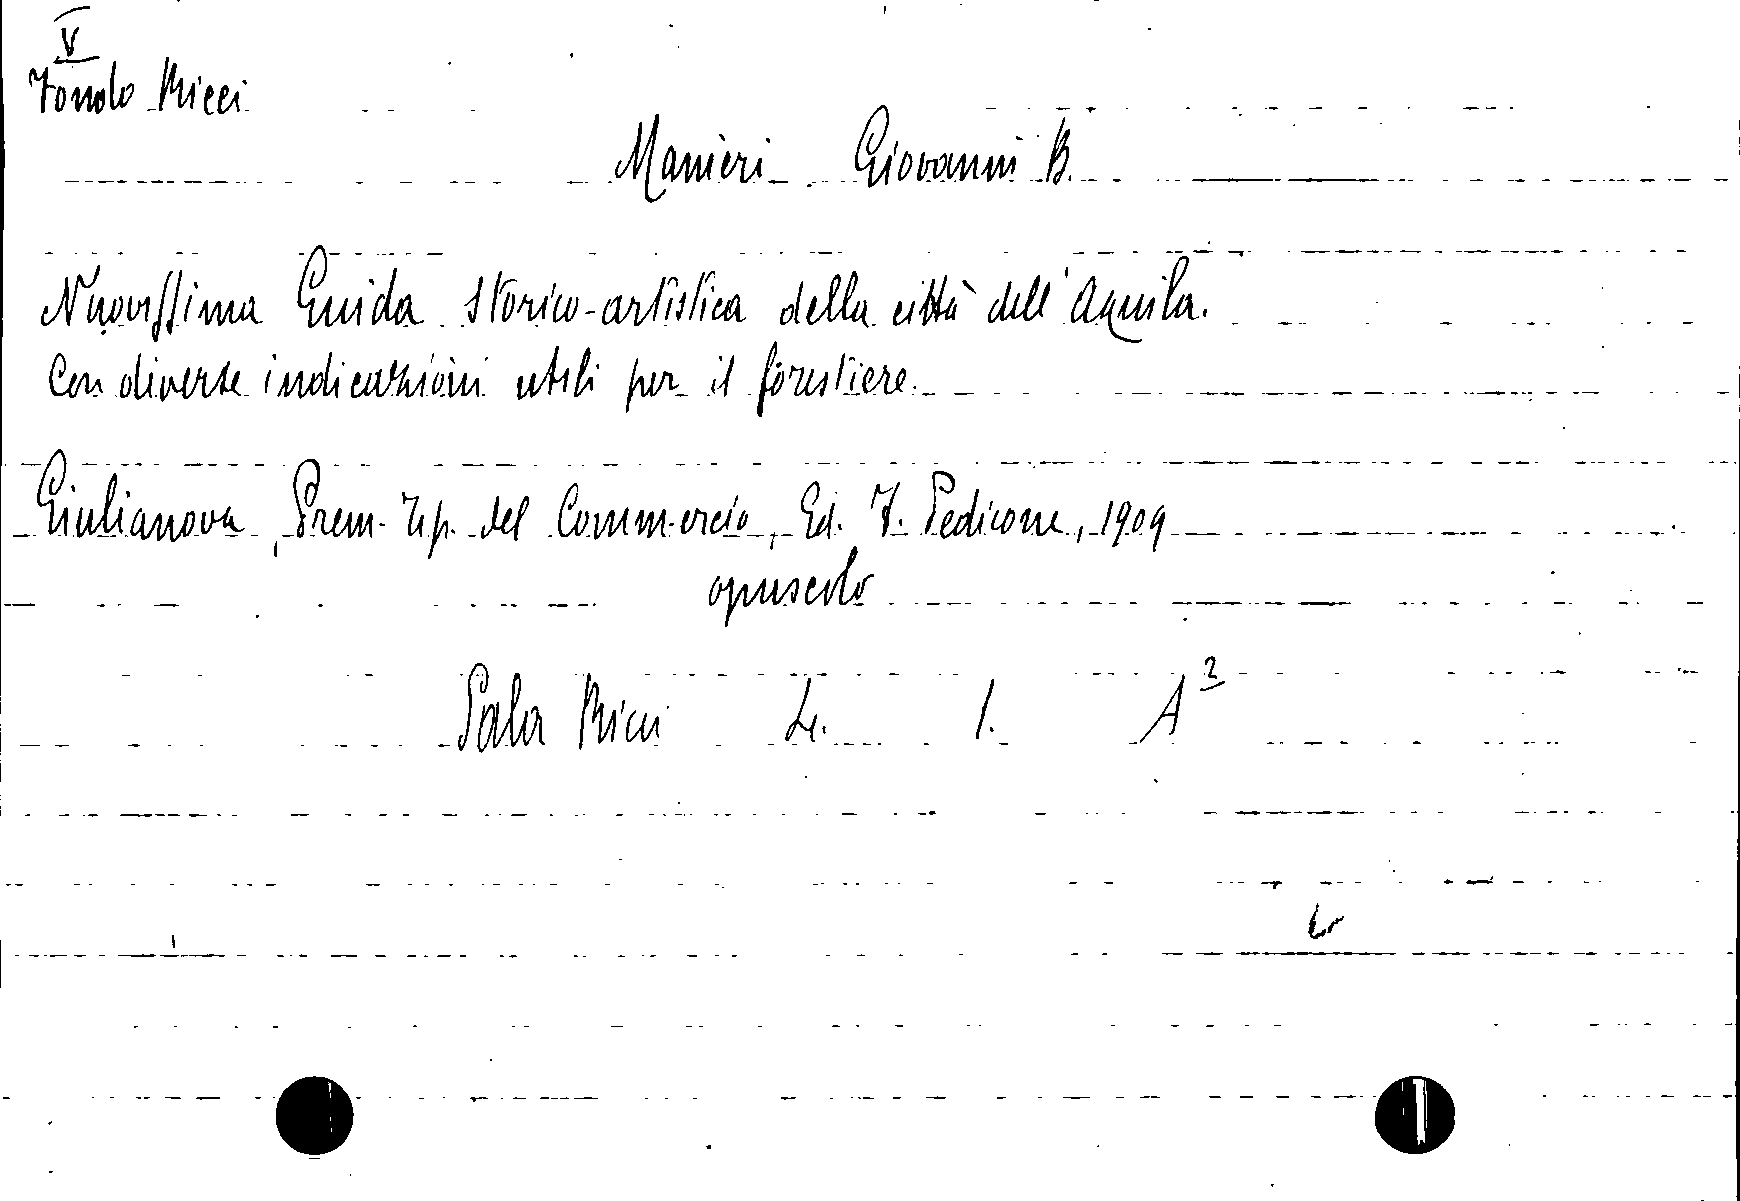 V
Fondo Ricci
Manieri Giovanni B.
Nuovissima Guida storico-artistica della città dell'Aquila.
Con diverse indicazioni utili per il forestiere.
Giulianova, Prem. Tip. del Commercio, Ed. F. Pedicone, 1909
opuscolo
Sala Ricci 4. 1. A²